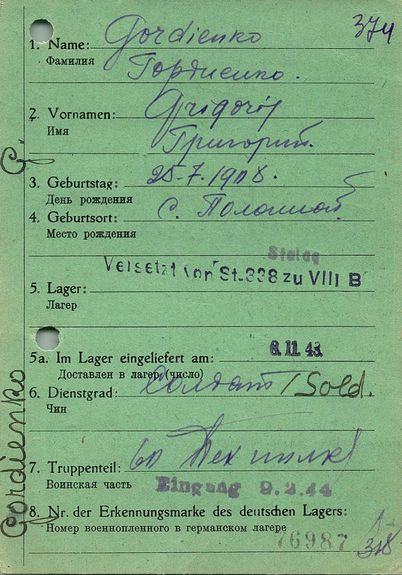 374
1. Name: Gordienko
Фамилия Гордиенко.
2. Vornamen: Grigorij
Имя Григорий.
3. Geburtstag: 25.7.1908.
День рождения
4. Geburtsort: с. Полошной
Место рождения
Stalag
Versetzt von St. 338 zu VIII B
5. Lager:
Лагерь
5a. Im Lager eingeliefert am: 6.11.43
Доставлен в лагерь (число)
6. Dienstgrad: Солдат / Sold.
Чин
7. Truppenteil: 60
Воинская часть
Eingang 9.2.44
8. Nr. der Erkennungsmarke des deutschen Lagers:
Номер военнопленного в германском лагере
76987
Gordienko G.